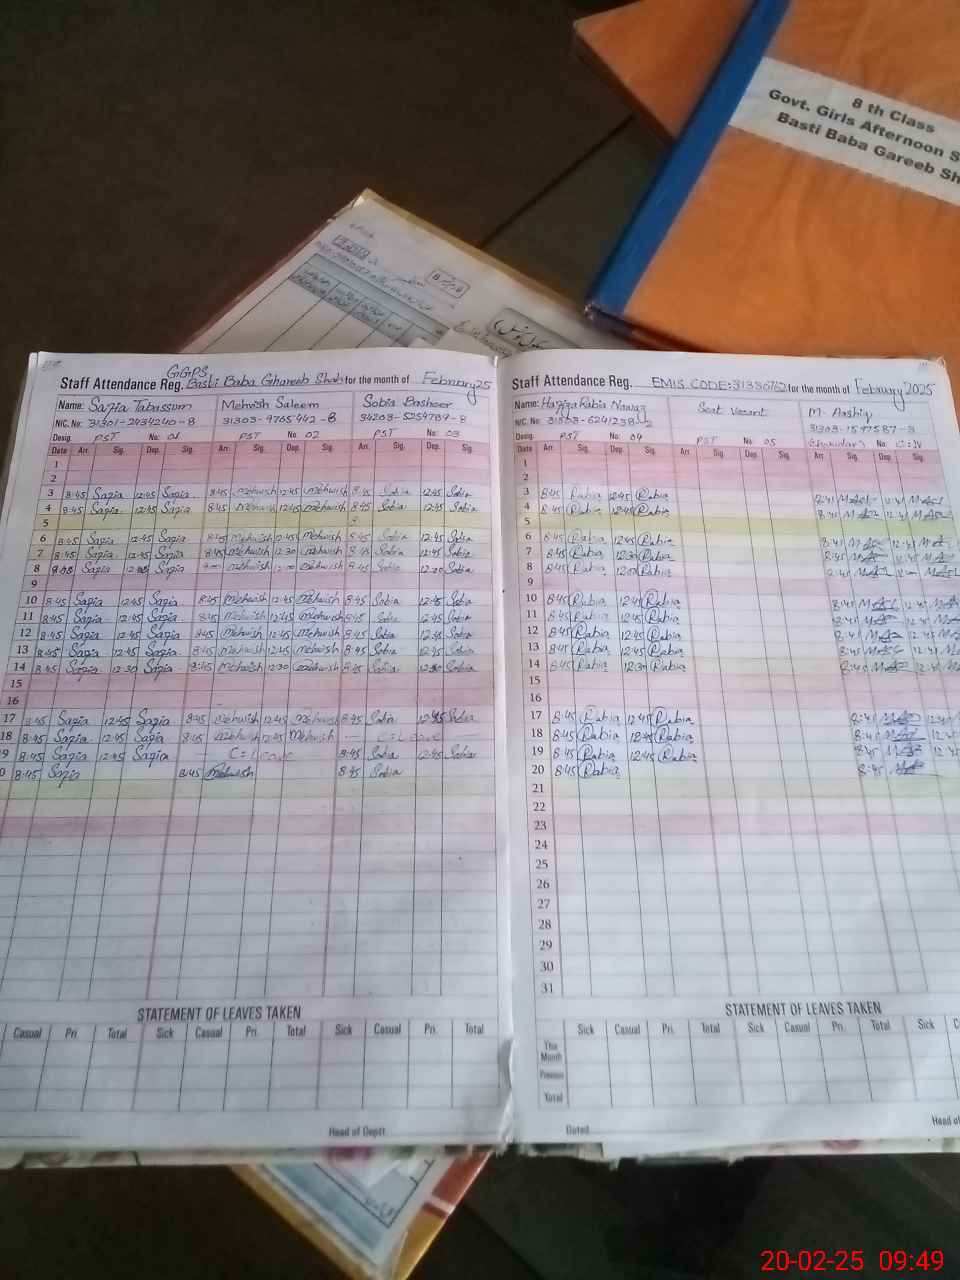 8 th Class
Govt. Girls Afternoon S
Basti Baba Gareeb Sh
GGPS
Staff Attendance Reg. Basti Baba Ghareeb Shah for the month of February 25
Name: Safia Tabassum Mehvish Saleem Sobia Basheer
N/C. No: 31301-2434240-8 31303-9765442-8 34203-5254789-8
Desig. PST No: 01 PST No 02 PST No: 03
Date Arr. Sig. Dep. Sig. Arr. Sig. Dep. Sig. Arr. Sig. Dep. Sig.
1
2
3 8:45 Safia 12:45 Safia 8:45 Mehwish 12:45 Mehwish 8:45 Sobia 12:45 Sobia
4 8:45 Safia 12:45 Safia 8:45 Mehwish 12:45 Mehwish 8:45 Sobia 12:45 Sobia
5
6 8:45 Safia 12:45 Safia 8:45 Mehwish 12:45 Mehwish 8:45 Sobia 12:45 Sobia
7 8:45 Safia 12:45 Safia 8:45 Mehwish 12:30 Mehwish 8:45 Sobia 12:45 Sobia
8 Safia Safia Mehwish Mehwish 8:45 Sobia Sobia
9
10 8:45 Safia 12:45 Safia 8:45 Mehwish 12:45 Mehwish 8:45 Sobia 12:45 Sobia
11 8:45 Safia 12:45 Safia 8:45 Mehwish 12:45 Mehwish 8:45 Sobia 12:45 Sobia
12 8:45 Safia 12:45 Safia 8:45 Mehwish 12:45 Mehwish 8:45 Sobia 12:45 Sobia
13 8:45 Safia 12:45 Safia 8:45 Mehwish 12:45 Mehwish 8:45 Sobia 12:45 Sobia
14 8:45 Safia 12:30 Safia 8:45 Mehwish 12:30 Mehwish 8:45 Sobia 12:30 Sobia
15
16
17 8:45 Safia 12:45 Safia 8:45 Mehwish 12:45 Mehwish 8:45 Sobia 12:45 Sobia
18 8:45 Safia 12:45 Safia 8:45 Mehwish 12:45 Mehwish — C=Leave —
9 8:45 Safia 12:45 Safia — C=Leave — 8:45 Sobia 12:45 Sobia
0 8:45 Safia 8:45 Mehwish 8:45 Sobia
STATEMENT OF LEAVES TAKEN
Casual Pri. Total Sick Casual Pri. Total Sick Casual Pri. Total
Head of Deptt.
Staff Attendance Reg. EMIS CODE: 31330762 for the month of February 2025
Name: Hafiza Rabia Nawaz Seat Vacant M. Aashiq
N/C. No: 31303-6241238-2 31303-1577587-3
Desig. PST No: 04 PST No: 05 No: C:IV
Date Arr. Sig. Dep. Sig. Arr. Sig. Dep. Sig. Arr. Sig. Dep. Sig.
1
2
3 8:45 Rabia 12:45 Rabia 8:45 12:45
4 8:45 Rabia 12:45 Rabia 8:45 12:45
5
6 8:45 Rabia 12:45 Rabia 8:45 12:45
7 8:45 Rabia 12:30 Rabia 8:45 12:45
8 8:45 Rabia 12:00 Rabia 8:45
9
10 8:45 Rabia 12:45 Rabia 8:45 12:45
11 8:45 Rabia 12:45 Rabia 8:45 12:45
12 8:45 Rabia 12:45 Rabia 8:45 12:45
13 8:45 Rabia 12:45 Rabia 8:45 12:45
14 8:45 Rabia 12:30 Rabia 8:45
15
16
17 8:45 Rabia 12:45 Rabia 8:45
18 8:45 Rabia 12:45 Rabia 8:45
19 8:45 Rabia 12:45 Rabia 8:45
20 8:45 Rabia 8:45
21
22
23
24
25
26
27
28
29
30
31
STATEMENT OF LEAVES TAKEN
Sick Casual Pri. Total Sick Casual Pri. Total Sick
This Month
Previous
Total
Dated
Head of
20-02-25 09:49